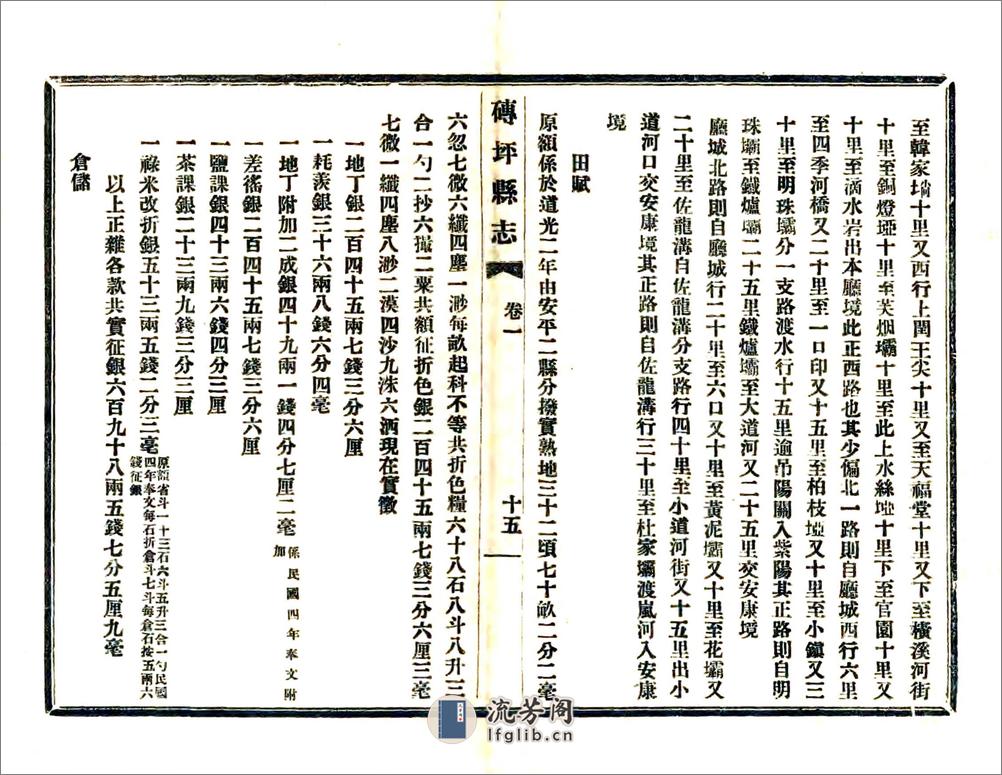 至韓家壋十里又西行上閻王尖十里又至天福堂十里又下至橫溪河街
十里至銅燈埡十里至芙烟壩十里至此上水絲埡十里下至官園十里又
十里至滴水岩出本廳境此正西路也其少偏北一路則自廳城西行六里
至四季河橋又二十里至一口印又十五里至柏枝埡又十里至小鎮又三
十里至明珠壩分一支路渡水行十五里逾吊陽關入紫陽其正路則自明
珠壩至鐵爐壩二十五里鐵爐壩至大道河又二十五里交安康境
廳城北路則自廳城行二十里至六口又十里至黃泥壩又十里至花壩又
二十里至佐龍溝自佐龍溝分支路行四十里至小道河街又十五里出小
道河口交安康境其正路則自佐龍溝行三十里至杜家壩渡嵐河入安康
境
田賦
原額係於道光二年由安平二縣分撥實熟地三十二頃七十畝二分二毫
磚坪縣志
卷一
十五
六忽七微六纖四塵一渺每畝起科不等共折色糧六十八石八斗八升三
合一勺二抄六撮二粟共額征折色銀二百四十五兩七錢三分六厘三毫
七微一纖四塵八渺二漠四沙九洙六洒現在實徵
一地丁銀二百四十五兩七錢三分六厘
一耗羨銀三十六兩八錢六分四毫
一地丁附加二成銀四十九兩一錢四分七厘二毫係民國四年奉文附加
一差徭銀二百四十五兩七錢三分六厘
一鹽課銀四十三兩六錢四分三厘
一茶課銀二十三兩九錢三分三厘
一祿米改折銀五十三兩五錢二分三毫原額省斗一十三石六斗五升三合一勺民國四年奉文每石折倉斗七斗每倉石按五兩六錢征銀
以上正雜各款共實征銀六百九十八兩五錢七分五厘九毫
倉儲
流芳阁
lfglib.cn